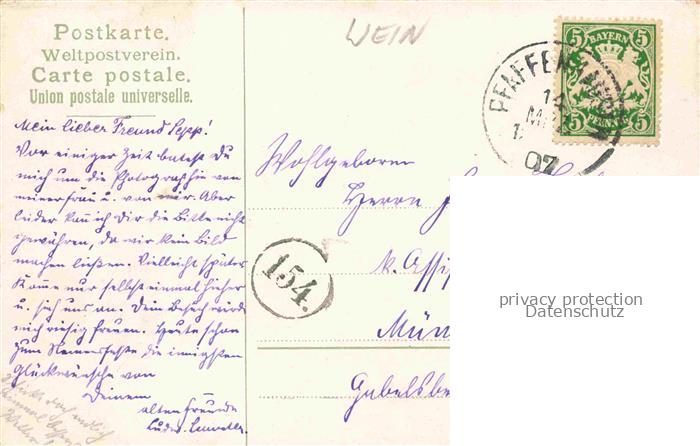 Postkarte.
Weltpostverein.
Carte postale.
Union postale universelle.
WEIN
BAYERN
5 5
5 PFENNIG 5
PFAFFEN
14
MRZ
07
Mein lieber Freund Sepp!
Vor einiger Zeit batest Du
mich um die Photographie von
meiner Frau u. von mir. Aber
leider kann ich Dir die Bitte nicht
gewähren, da wir kein Bild
machen ließen. Vielleicht später
Komme nur selbst einmal hieher
u. sieh uns an. Dein Besuch würde
mich riesig freuen. Heute schon
zum Namensfeste die innigsten
Glückwünsche von
Deinem
alten Freunde
Ludw.
Wohlgeboren
Herrn
k. Assis
Mün
Gabelsbe
154.
privacy protection
Datenschutz